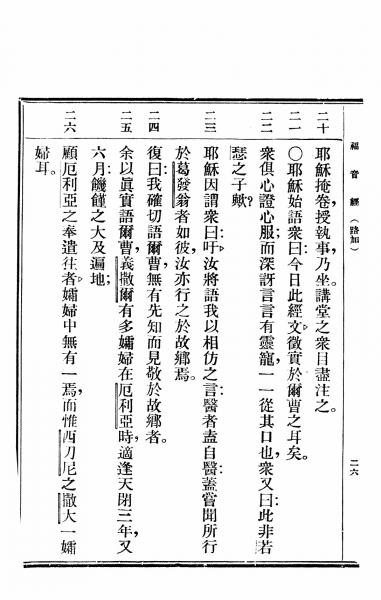 福音經（路加）　二六
二十　耶穌掩卷授執事，乃坐。講堂之衆目盡注之。
二一　〇耶穌始語衆曰：今日此經文徵實於爾曹之耳矣。
二二　衆俱心證心服；而深訝言言有靈寵，一一從其口也，衆又曰：此非若
瑟之子歟？
二三　耶穌因謂衆曰：吁，汝將語我以相仿之言：醫者盍自醫；蓋嘗聞所行
於葛發翁者如彼，汝亦行之於故鄉焉。
二四　復曰：我確切語爾曹，無有先知而見敬於故鄉者。
二五　余以眞實語爾曹，義撒爾有多孀婦在厄利亞時，適逢天閉三年，又
六月；饑饉之大及遍地；
二六　顧厄利亞之奉遣往者，孀婦中無有一焉，而惟西刀尼之撒大一孀
婦耳。